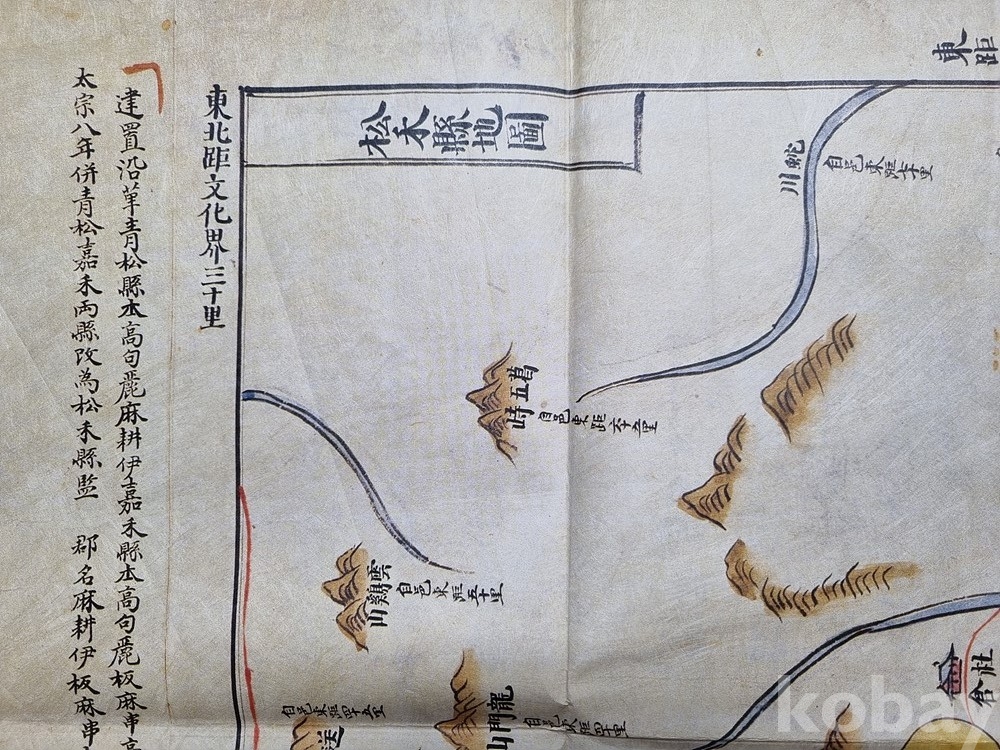 東距
東北距文化界三十里
建置沿革青松縣本高句麗麻耕伊嘉禾縣本高句麗板麻串
太宗八年併青松嘉禾両縣改為松禾縣監 郡名麻耕伊板麻串
松禾縣地圖
蛇川
自邑東距七十里
葛五峙
自邑東距六十五里
雲鷄山
自邑東距五十里
龍門山
自邑東距四十里
送
自邑東距四十五里
社倉
kobay